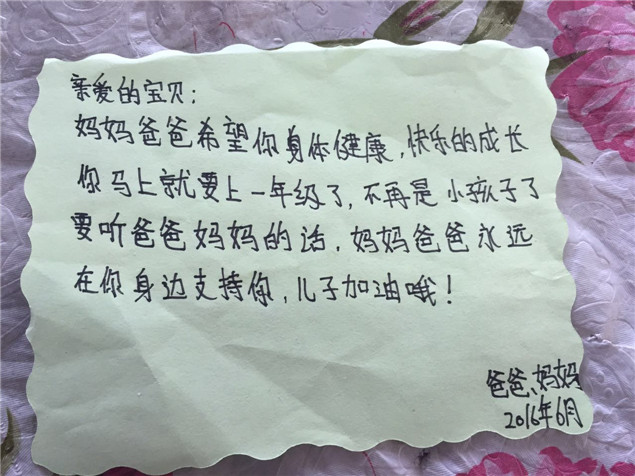 亲爱的宝贝：
妈妈爸爸希望你身体健康，快乐的成长
你马上就要上一年级了，不再是小孩子了
要听爸爸妈妈的话，妈妈爸爸永远
在你身边支持你，儿子加油哦！
爸爸、妈妈
2016年6月